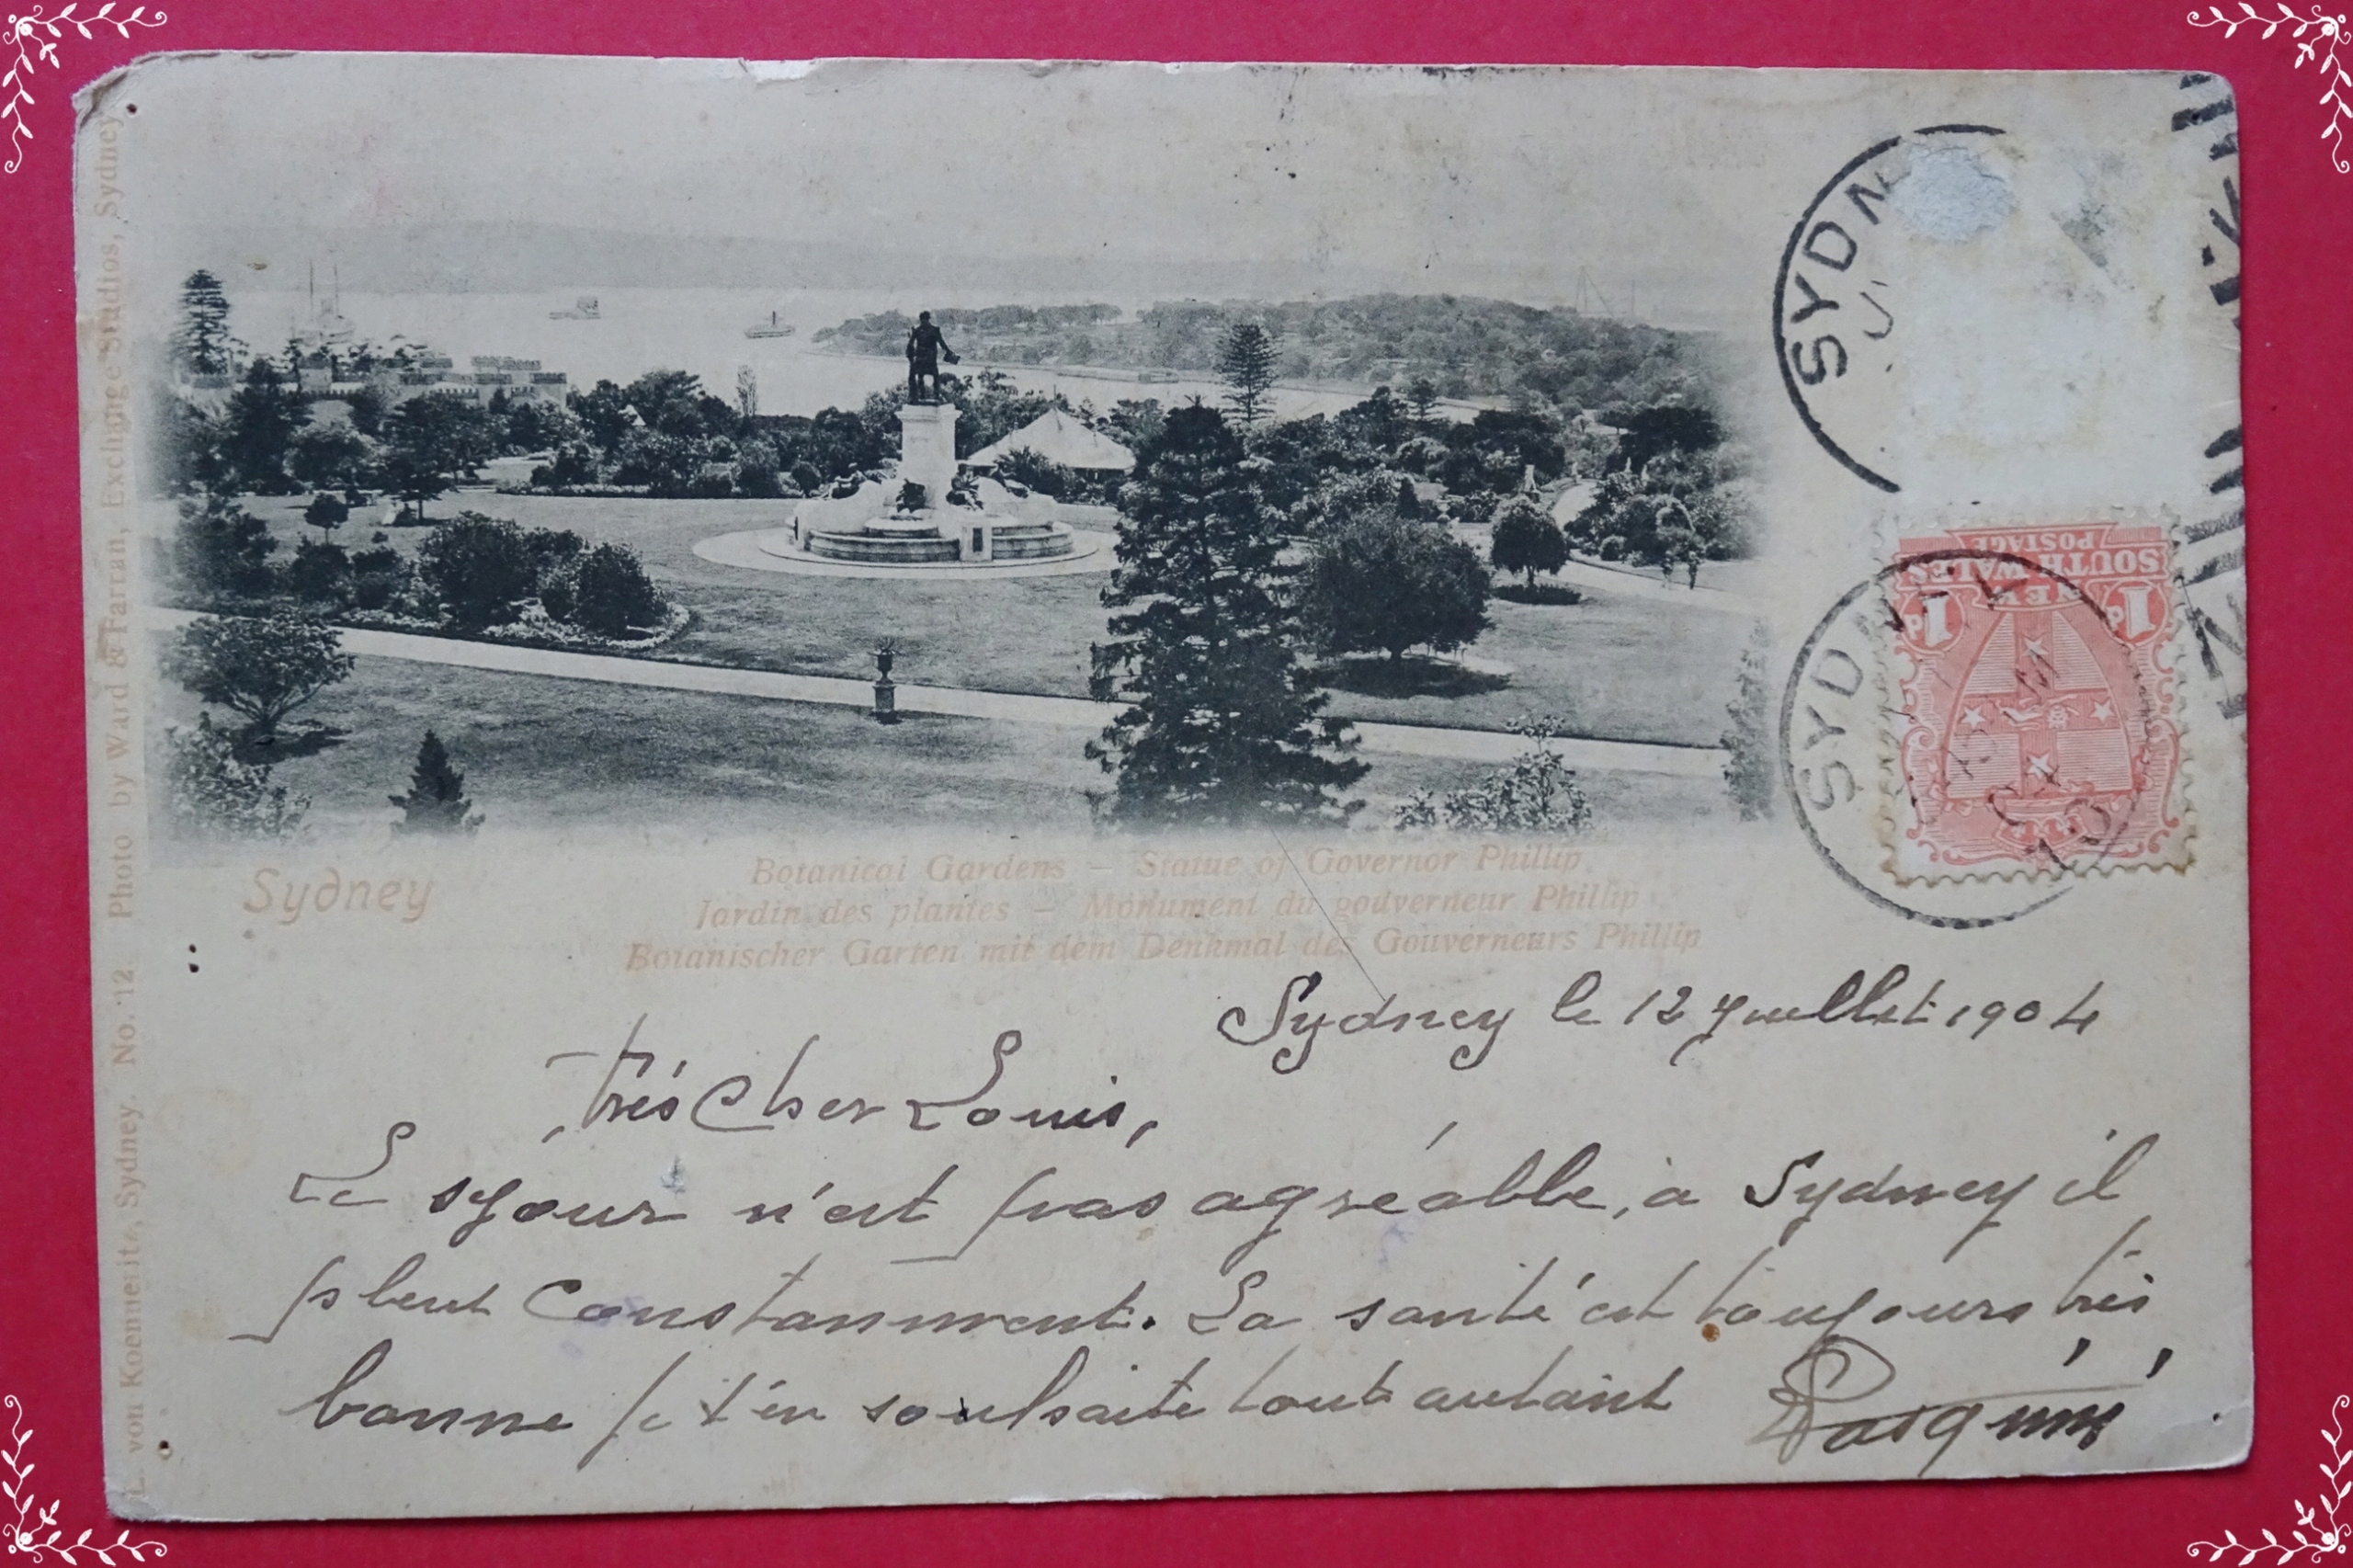 L. von Koenneritz, Sydney. No. 12 Photo by Ward & Farran, Exchange Studios, Sydney.
SYDN
SOUTH WALES
NEW
POSTAGE
1d 1d
SYDN
Sydney
Botanical Gardens — Statue of Governor Phillip
Jardin des plantes — Monument du gouverneur Phillip
Botanischer Garten mit dem Denkmal des Gouverneurs Phillip
Sydney le 12 Juillet 1904
très Cher Louis,
Le séjour n'est pas agréable, a Sydney il
pleut Constamment. La santé est toujours très
bonne je t'en souhaite tout autant